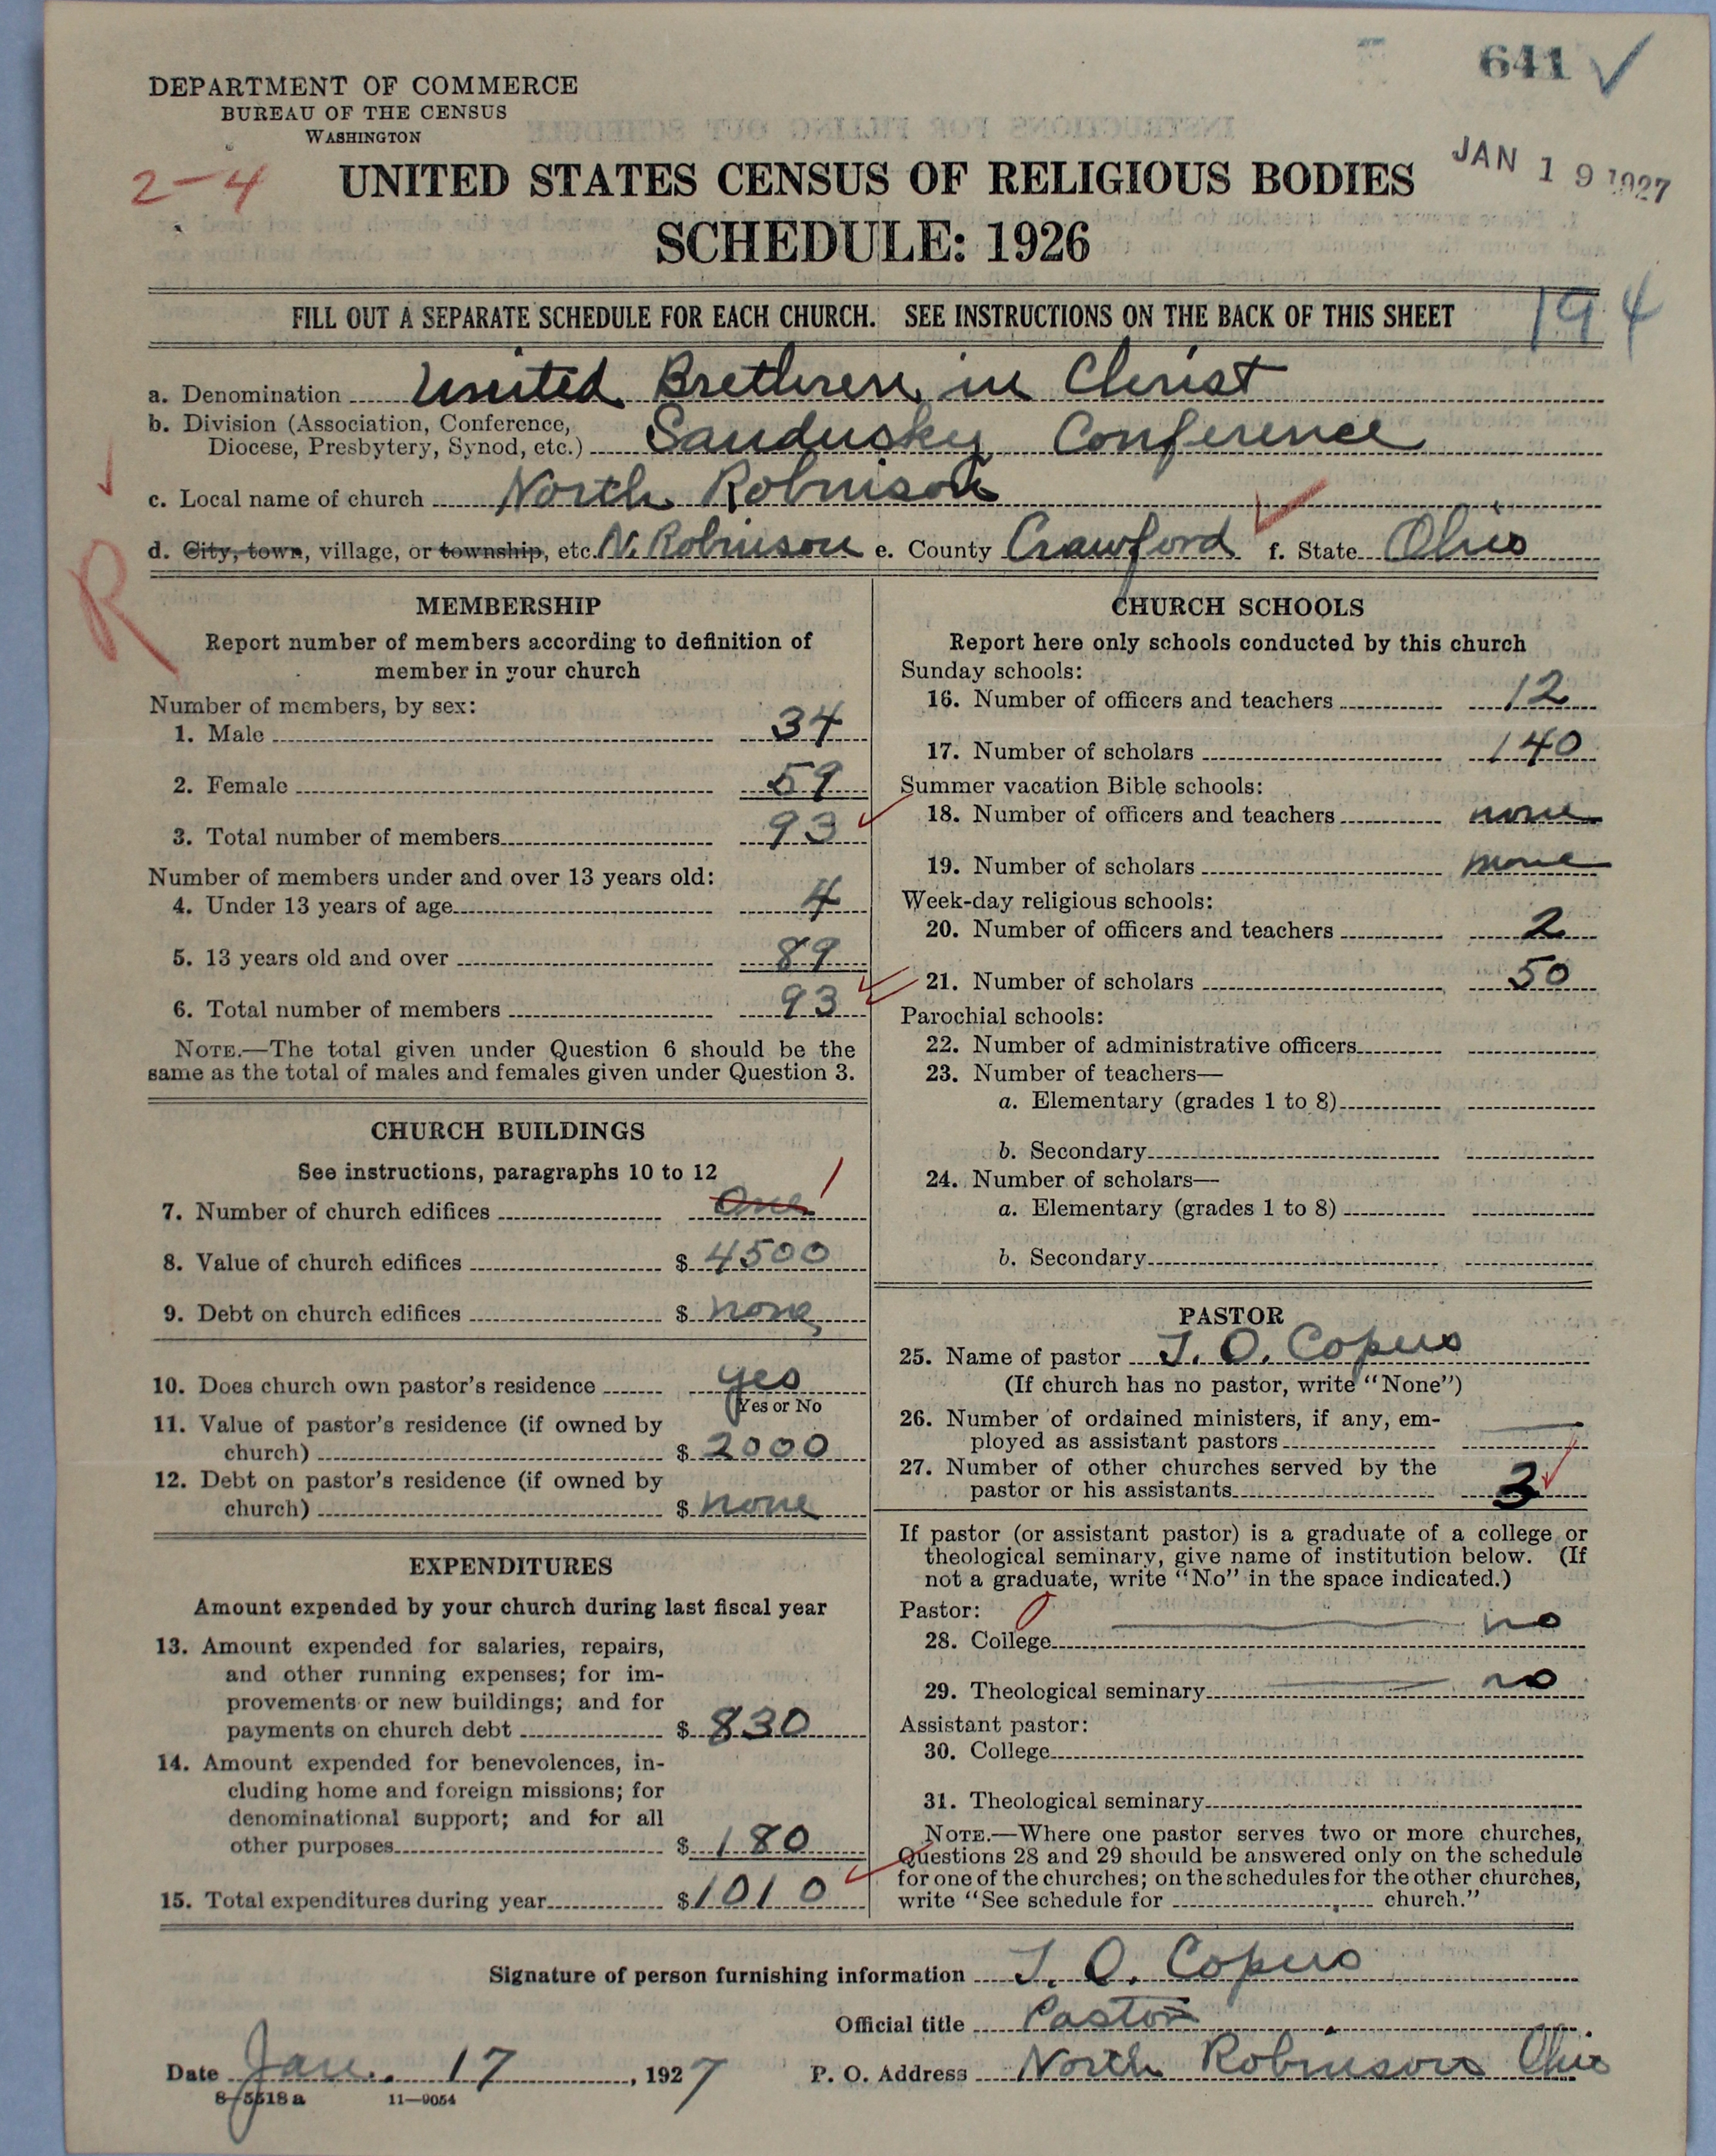 641 ✓
DEPARTMENT OF COMMERCE
BUREAU OF THE CENSUS
WASHINGTON
JAN 19 1927
2-4
UNITED STATES CENSUS OF RELIGIOUS BODIES
SCHEDULE: 1926
FILL OUT A SEPARATE SCHEDULE FOR EACH CHURCH. SEE INSTRUCTIONS ON THE BACK OF THIS SHEET
194
a. Denomination United Brethren in Christ
b. Division (Association, Conference,
Diocese, Presbytery, Synod, etc.) Sandusky Conference
c. Local name of church North Robinson
d. City, town, village, or township, etc. N. Robinson e. County Crawford f. State Ohio
R
MEMBERSHIP
Report number of members according to definition of
member in your church
Number of members, by sex:
1. Male 34
2. Female 59
3. Total number of members 93
Number of members under and over 13 years old:
4. Under 13 years of age 4
5. 13 years old and over 89
6. Total number of members 93
NOTE.—The total given under Question 6 should be the
same as the total of males and females given under Question 3.
CHURCH BUILDINGS
See instructions, paragraphs 10 to 12
7. Number of church edifices One 1
8. Value of church edifices $ 4500
9. Debt on church edifices $ none
10. Does church own pastor's residence yes
Yes or No
11. Value of pastor's residence (if owned by
church) $ 2000
12. Debt on pastor's residence (if owned by
church) $ none
EXPENDITURES
Amount expended by your church during last fiscal year
13. Amount expended for salaries, repairs,
and other running expenses; for im-
provements or new buildings; and for
payments on church debt $ 830
14. Amount expended for benevolences, in-
cluding home and foreign missions; for
denominational support; and for all
other purposes $ 180
15. Total expenditures during year $ 1010
CHURCH SCHOOLS
Report here only schools conducted by this church
Sunday schools:
16. Number of officers and teachers 12
17. Number of scholars 140
Summer vacation Bible schools:
18. Number of officers and teachers none
19. Number of scholars none
Week-day religious schools:
20. Number of officers and teachers 2
21. Number of scholars 50
Parochial schools:
22. Number of administrative officers
23. Number of teachers—
a. Elementary (grades 1 to 8)
b. Secondary
24. Number of scholars—
a. Elementary (grades 1 to 8)
b. Secondary
PASTOR
25. Name of pastor J. O. Copus
(If church has no pastor, write "None")
26. Number of ordained ministers, if any, em-
ployed as assistant pastors —
27. Number of other churches served by the
pastor or his assistants 3
If pastor (or assistant pastor) is a graduate of a college or
theological seminary, give name of institution below. (If
not a graduate, write "No" in the space indicated.)
Pastor: 0
28. College — no
29. Theological seminary — no
Assistant pastor:
30. College
31. Theological seminary
NOTE.—Where one pastor serves two or more churches,
Questions 28 and 29 should be answered only on the schedule
for one of the churches; on the schedules for the other churches,
write "See schedule for church."
Signature of person furnishing information J. O. Copus
Official title Pastor
Date Jan. 17, 1927 P. O. Address North Robinson Ohio
8-5518 a 11-9054